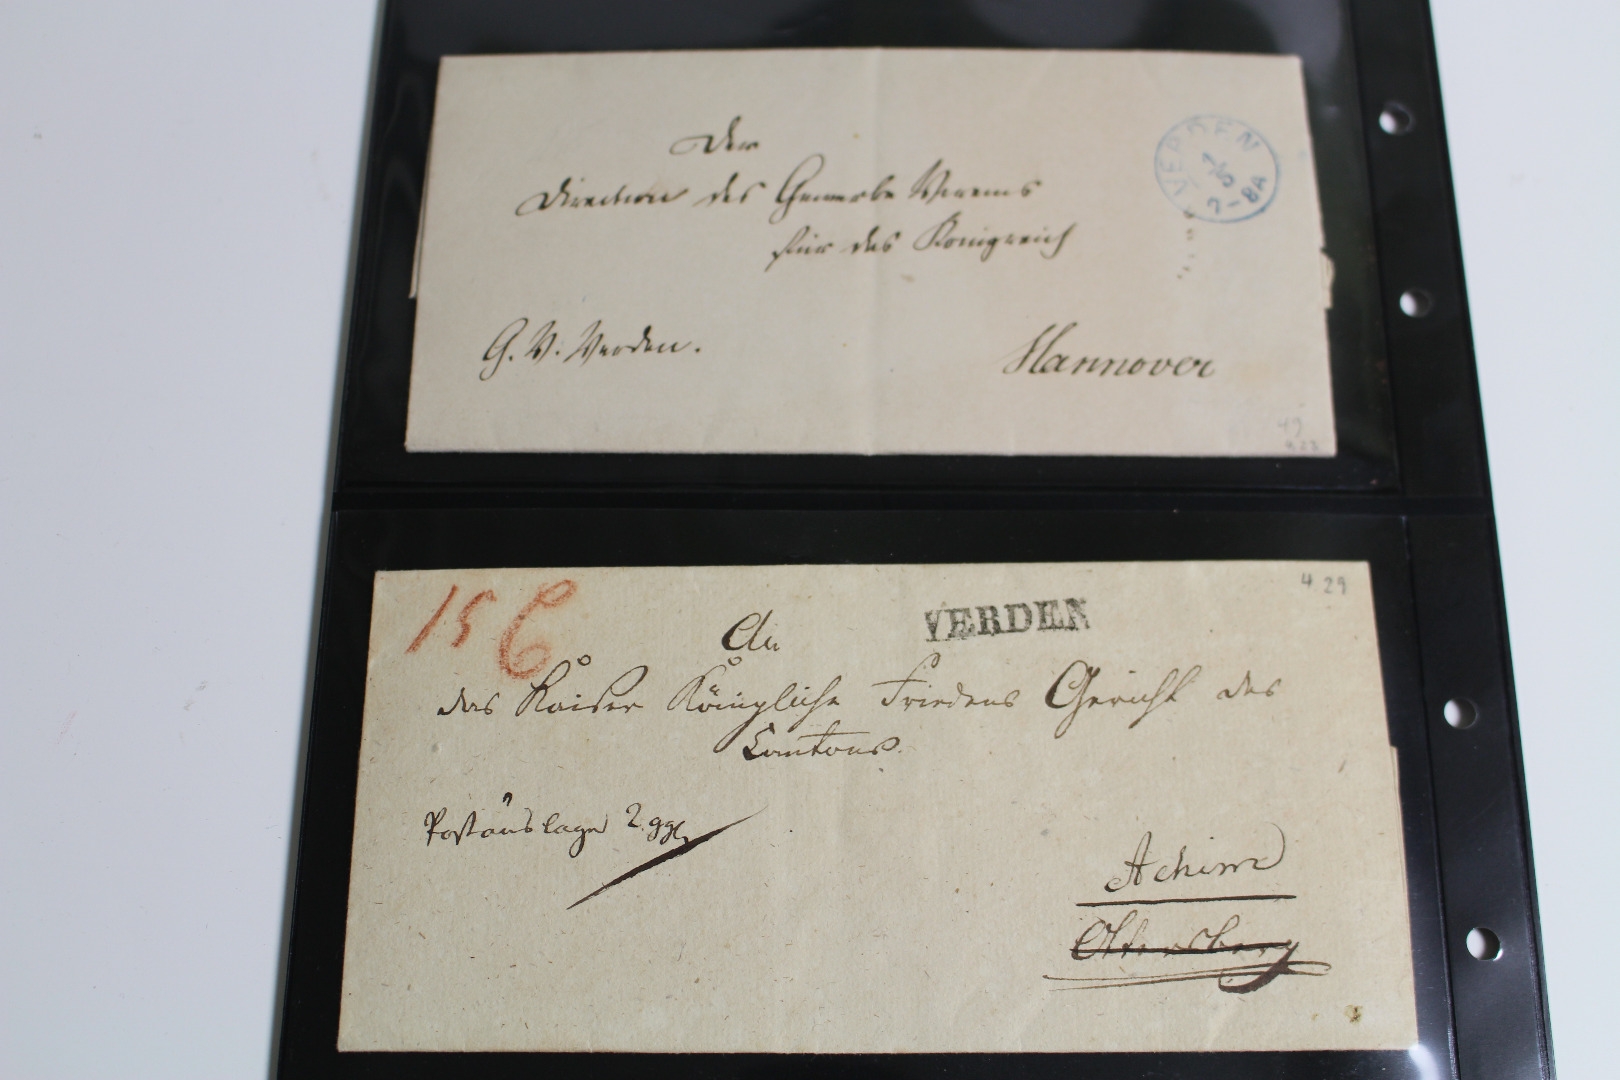 Der
Direction des Gewerbe Vereins
für das Königreich
G. V. Verden.
Hannover
VERDEN
7-8A
49
15
VERDEN
4 29
An
das Kaiser Königliche Friedens Gericht des
Cantons
Postauslage 2 ggl
Achim
Ottersberg